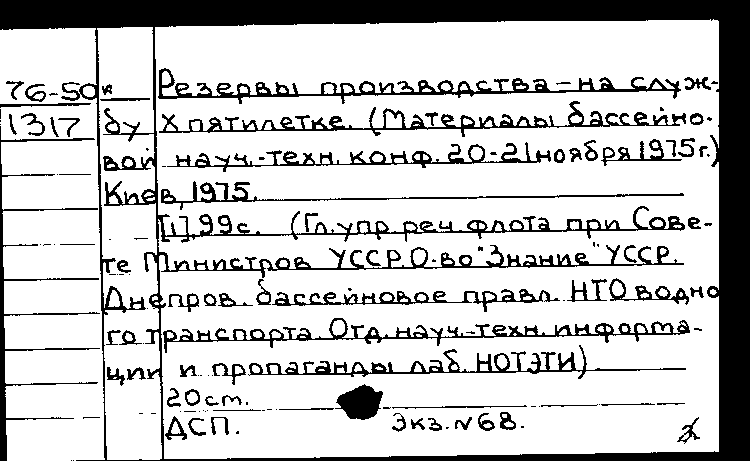 76-50к Резервы производства-на служ-
1317 бу X пятилетке. (Материалы бассейно-
вой науч.-техн. конф. 20-21 ноября 1975г.)
Киев, 1975.
[1], 99с. (Гл. упр. реч. флота при Сове-
те Министров УССР. О-во "Знание" УССР.
Днепров. бассейновое правл. НТО водно
го транспорта. Отд. науч.-техн. информа-
ции и пропаганды лаб. НОТЭТИ)
20 см.
ДСП. Экз. №68.